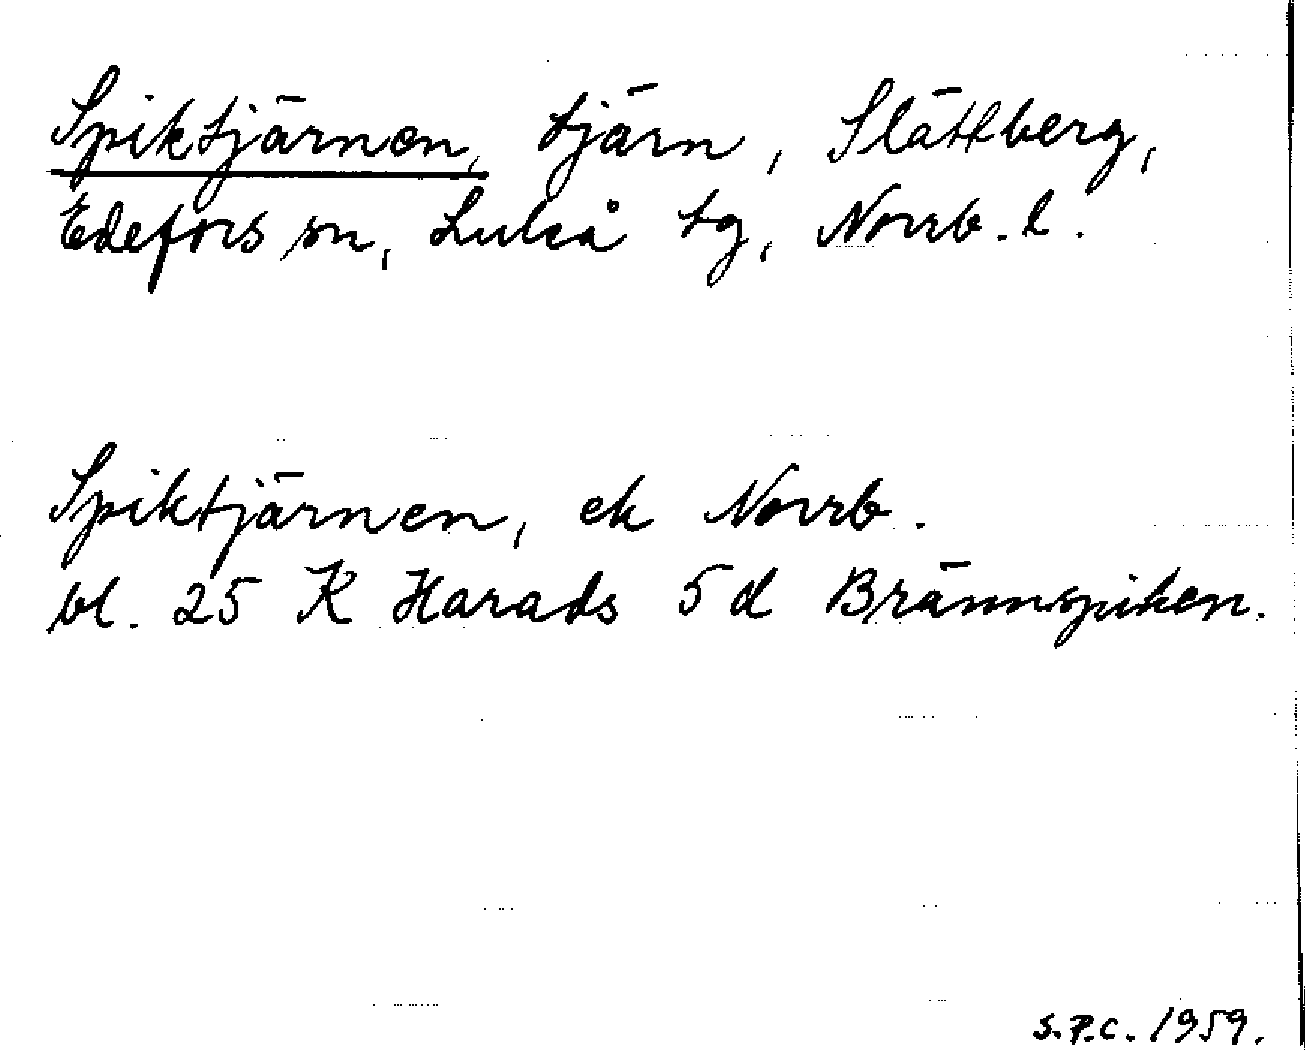 Spiktjärnen, tjärn, Slättberg,
Edefors sn, Luleå tg, Norrb. l.
Spiktjärnen, ek Norrb.
bl. 25 K Harads 5 d Brännspiken.
S.P.C. 1959.